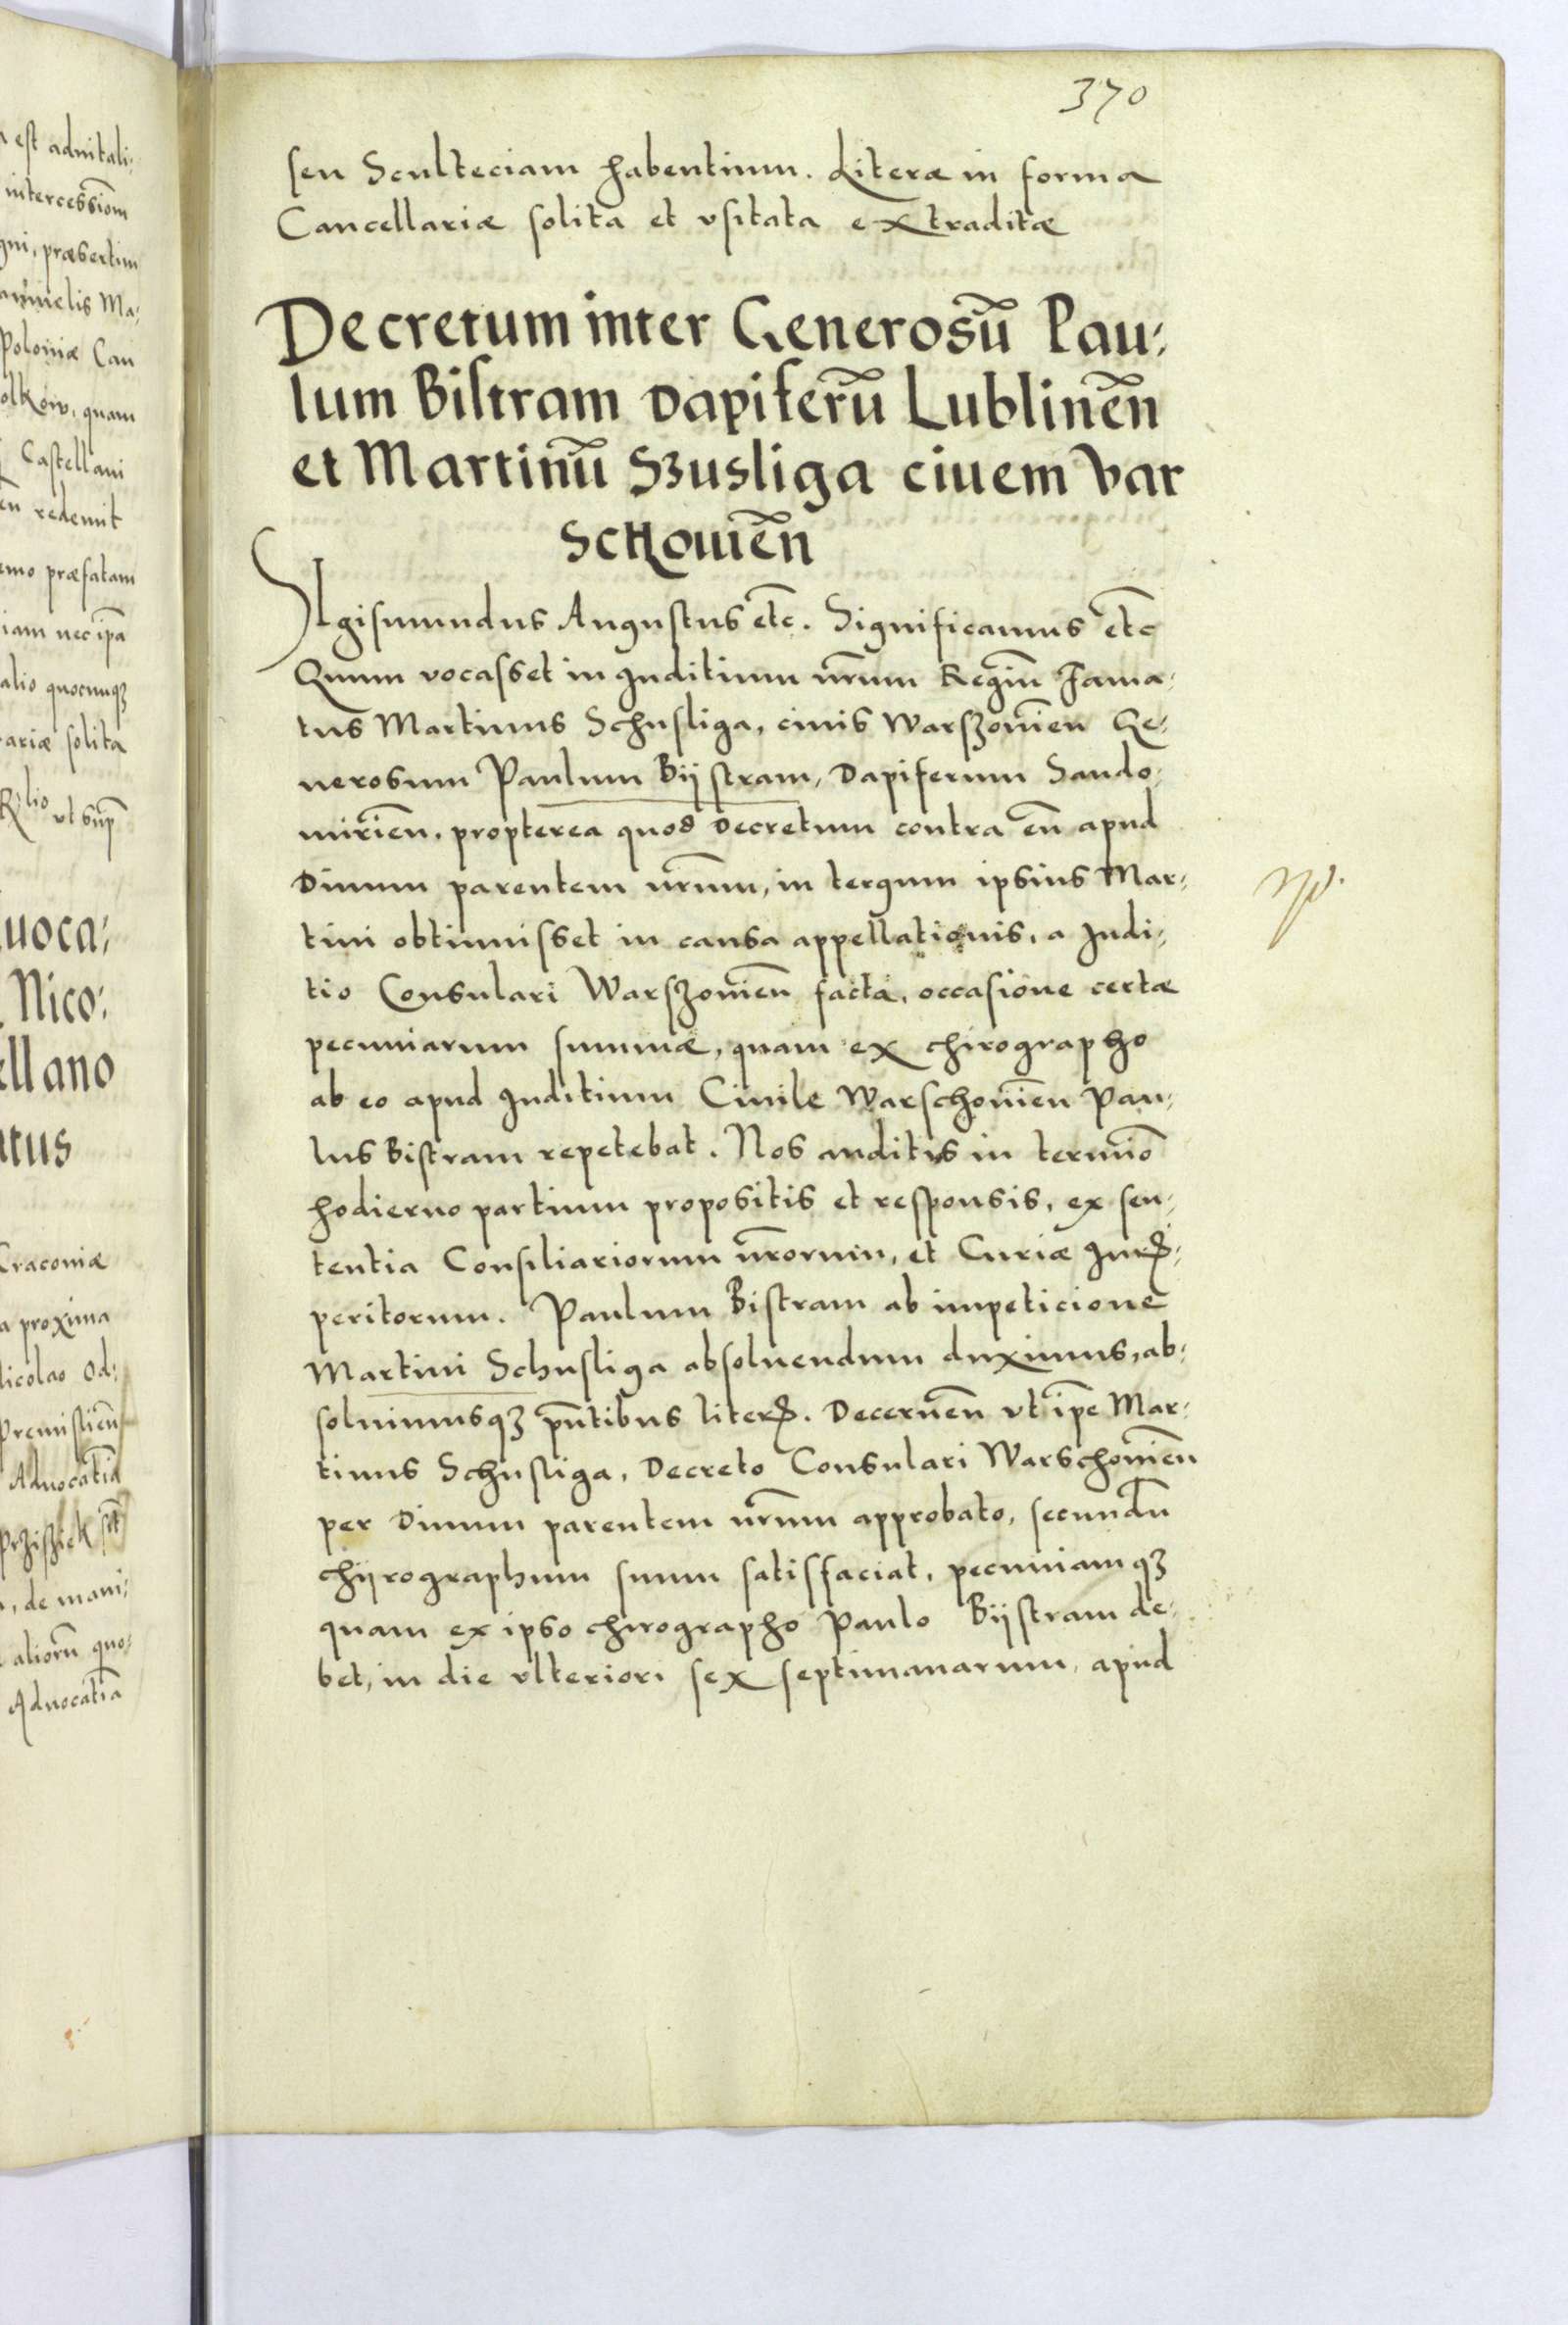 370
seu Scultetiam habentium. Literæ in forma
Cancellariæ solita et vsitata extraditæ
Decretum inter Generosū Pau:
lum Bistram Dapiferū Lublinēn
et Martinū Szusliga ciuem Var
schouiēn
Sigismundus Augustus etc̄. Significamus etc̄
Quum vocasset in Iuditium nr̄um Regiū Fama:
tus Martinus Schusliga, ciuis Warszouień Ge:
nerosum Paulum Bijstram, Dapiferum Sando:
miriēn. propterea quod Decretum contra eū apud
Diuum parentem nr̄um, in tergum ipsius Mar:
tini obtinuisset in causa appellationis, a Iudi:
tio Consulari Warszouiēn facta, occasione certæ
pecuniarum summæ, quam ex chirographo
ab eo apud Iuditium Ciuile Warschouiēn Pau:
lus Bistram repetebat. Nos auditis in termīo
hodierno partium propositis et responsis, ex sen:
tentia Consiliariorum nr̄orum, et Curiæ Iurꝭ:
peritorum. Paulum Bistram ab impeticione
Martini Schusliga absoluendum duximus, ab:
soluimusqꝫ pn̄tibus literꝭ. Decernēn vt ip̄e Mar:
tinus Schusliga, Decreto Consulari Warschouiēn
per Diuum parentem nr̄um approbato, secundū
chijrographum suum satisfaciat, pecuniamqꝫ
quam ex ipso chirographo Paulo Bijstram de:
bet, in die vlteriori sex septimanarum, apud
est aduitali:
intercessiom̄
gni, præsertim
Ma:
Poloniæ Can
olkow, quam
Castellani
redemit
emo præfatam
iam nec ip̄a
alio quocunqꝫ
ariæ solita
vt sup̄
uoca:
Nico:
ellano
atus
Cracouiæ
a proxima
Nicolao Od:
Premisliēn
Aduocatiā
, de mani:
aliorū quo:
Aduocatiā